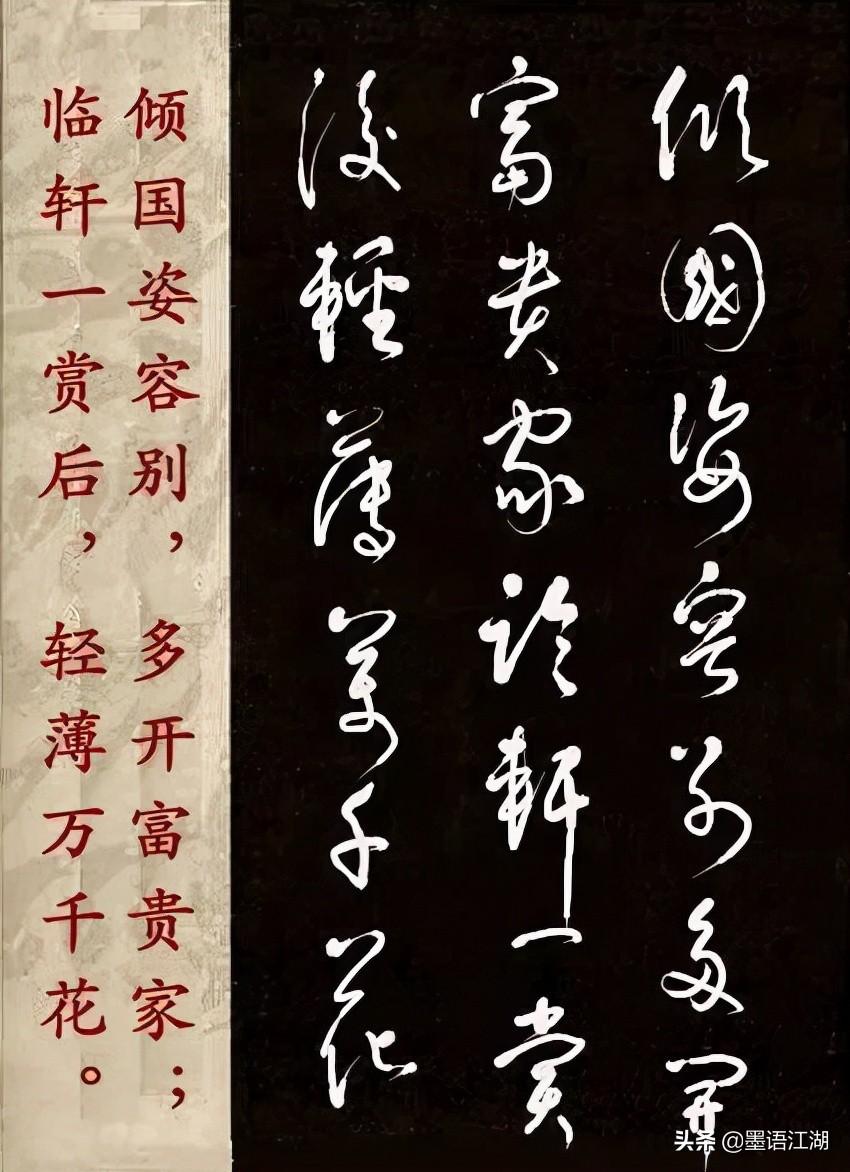 倾國姿容别多開
富貴家临軒一賞
後輕薄萬千花
倾国姿容别，多开富贵家；
临轩一赏后，轻薄万千花。
头条 @墨语江湖